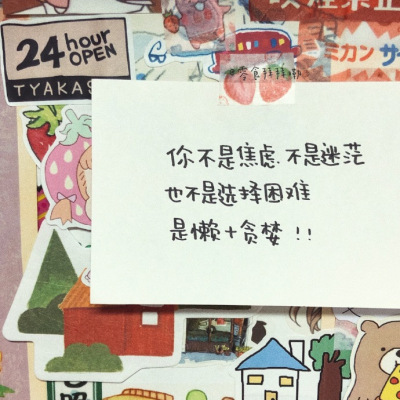 24 hour
OPEN
TYAKAS
零食拜拜嘞
你不是焦虑.不是迷茫
也不是选择困难
是懒+贪婪!!
ミカン
サ